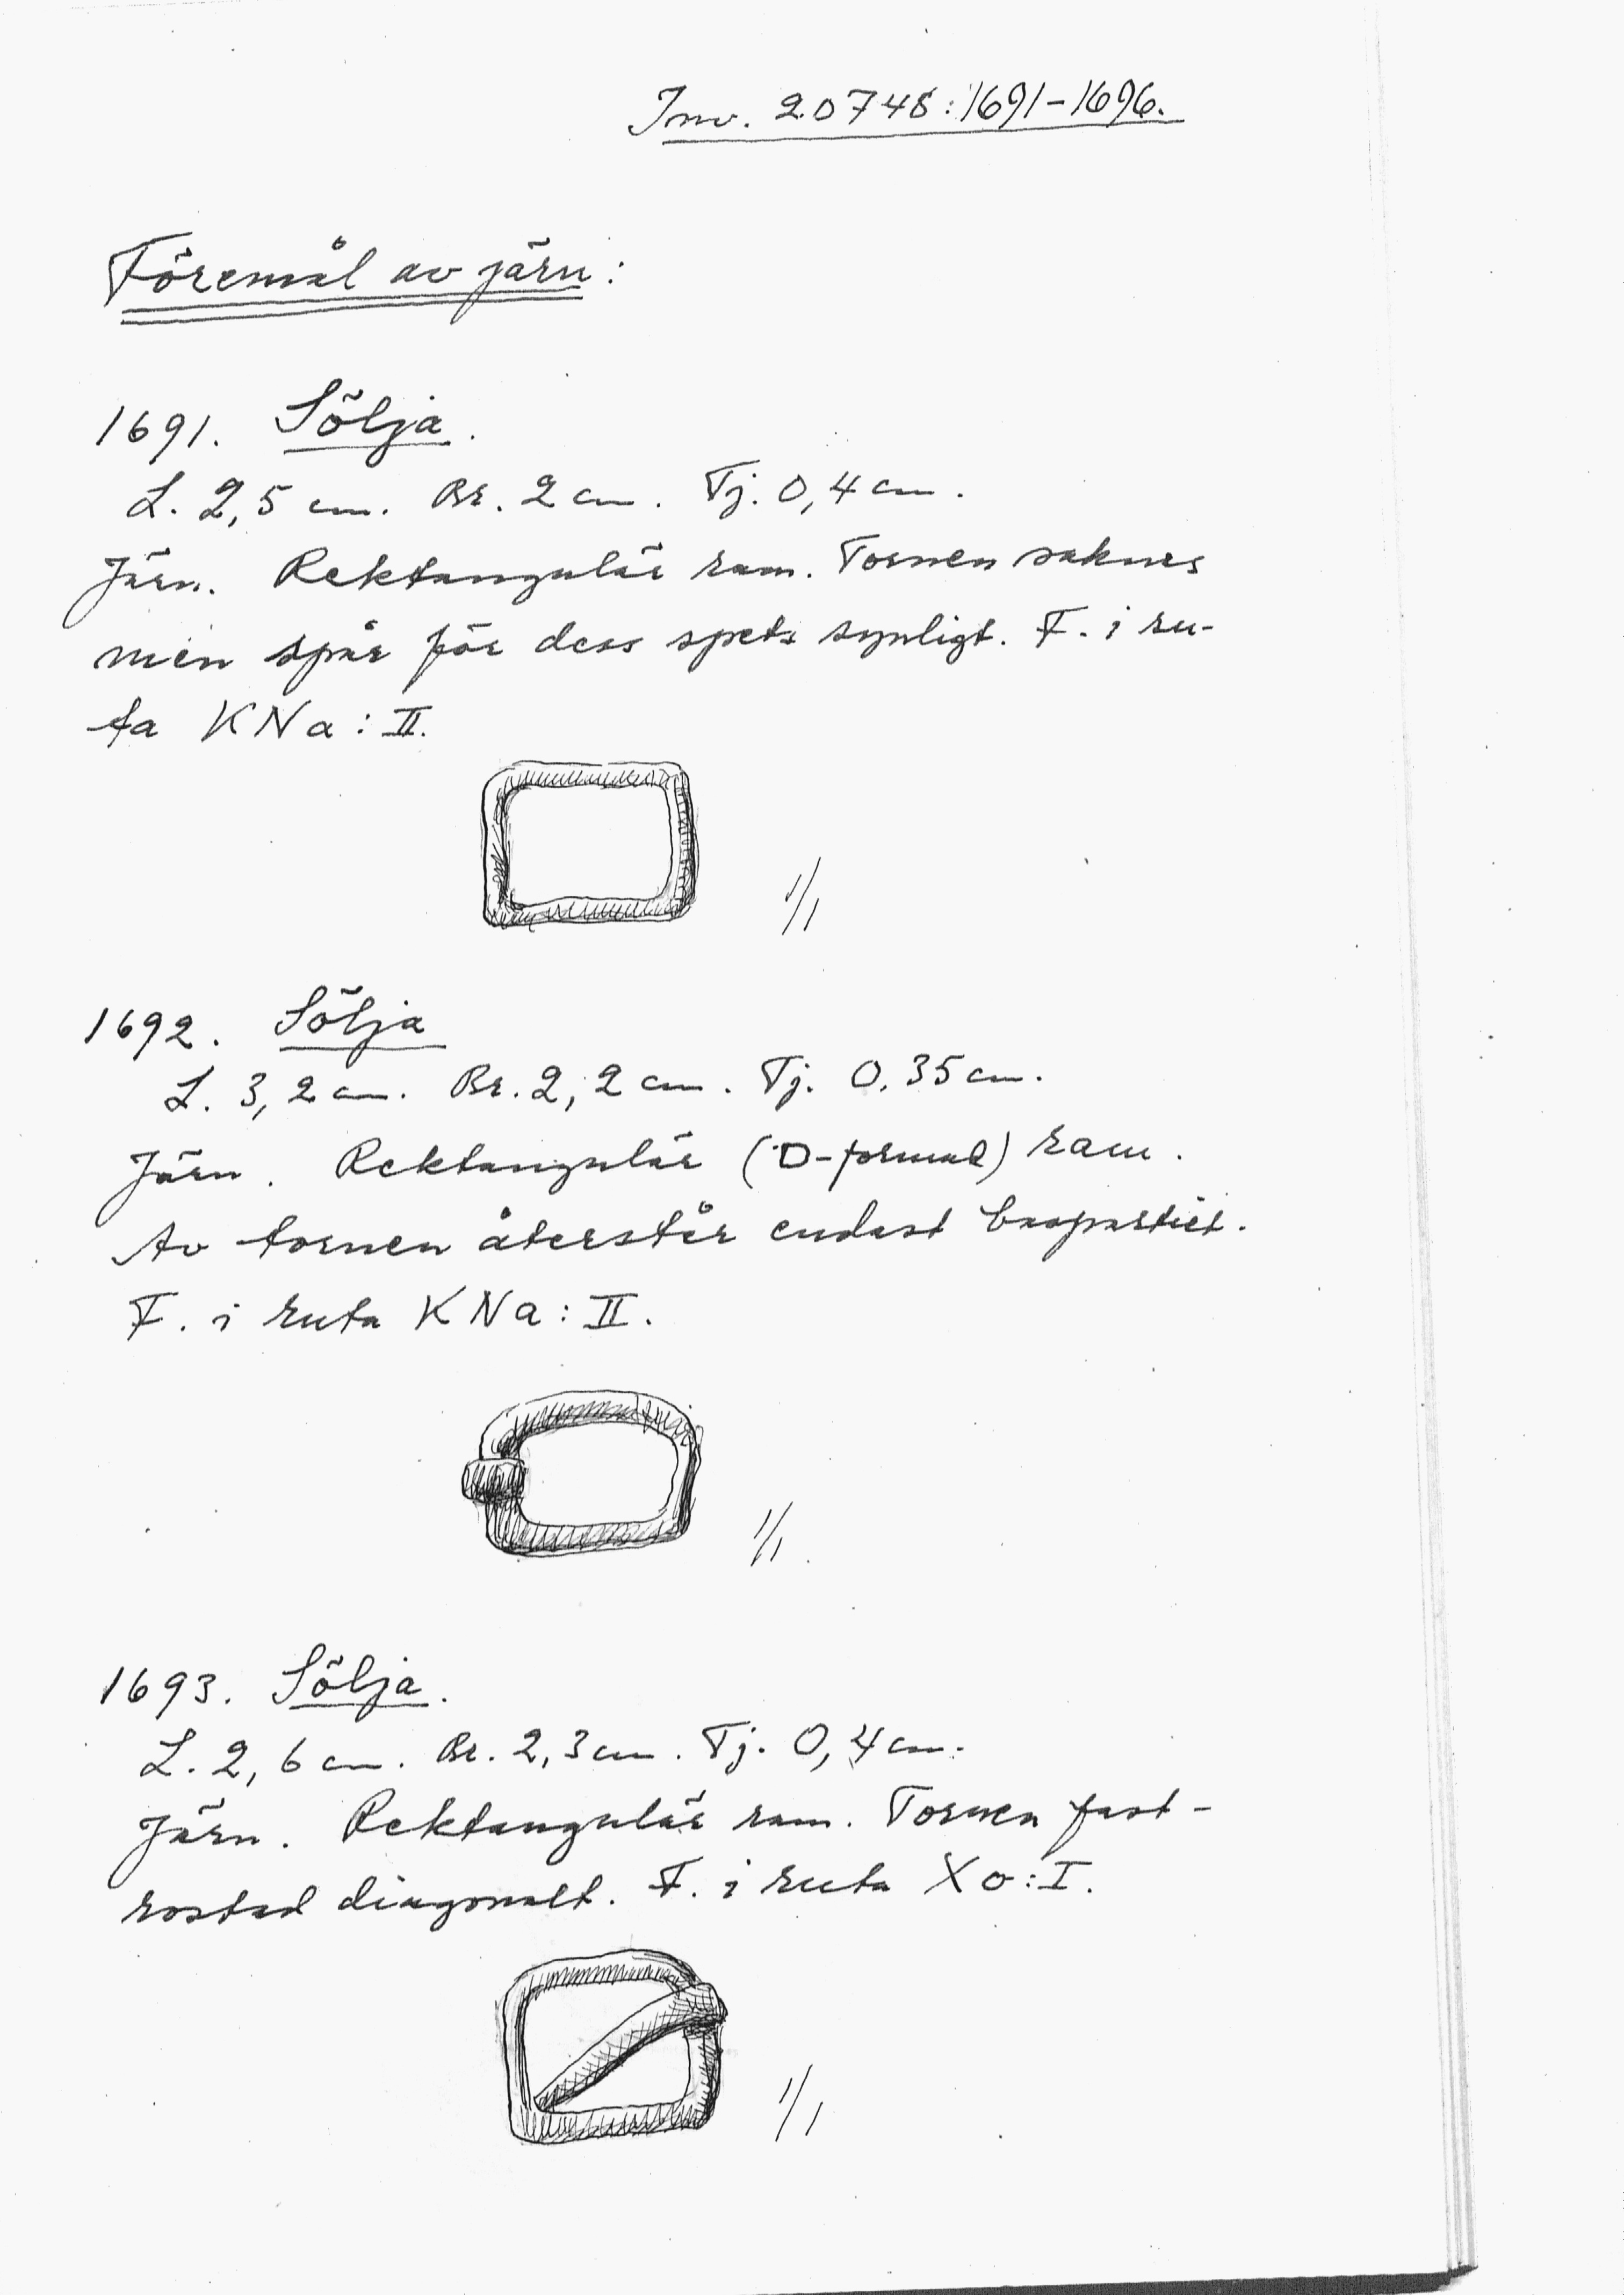 Inv. 20748:1691-1696.
Föremål av järn:
1691. Sölja.
L. 2,5 cm. Br. 2 cm. Tj. 0,4 cm.
Järn. Rektangulär ram. Tornen saknas
men spår för dess spets synligt. F. i ru-
ta KNa:II.
1/1
1692. Sölja
L. 3,2 cm. Br. 2,2 cm. Tj. 0.35 cm.
Järn. Rektangulär (D-formad) ram.
Av tornen återstår endast baspartiet.
F. i ruta KNa:II.
1/1
1693. Sölja.
L. 2,6 cm. Br. 2,3 cm. Tj. 0,4 cm.
Järn. Rektangulär ram. Tornen fast-
rostad diagonalt. F. i ruta Xo:I.
1/1